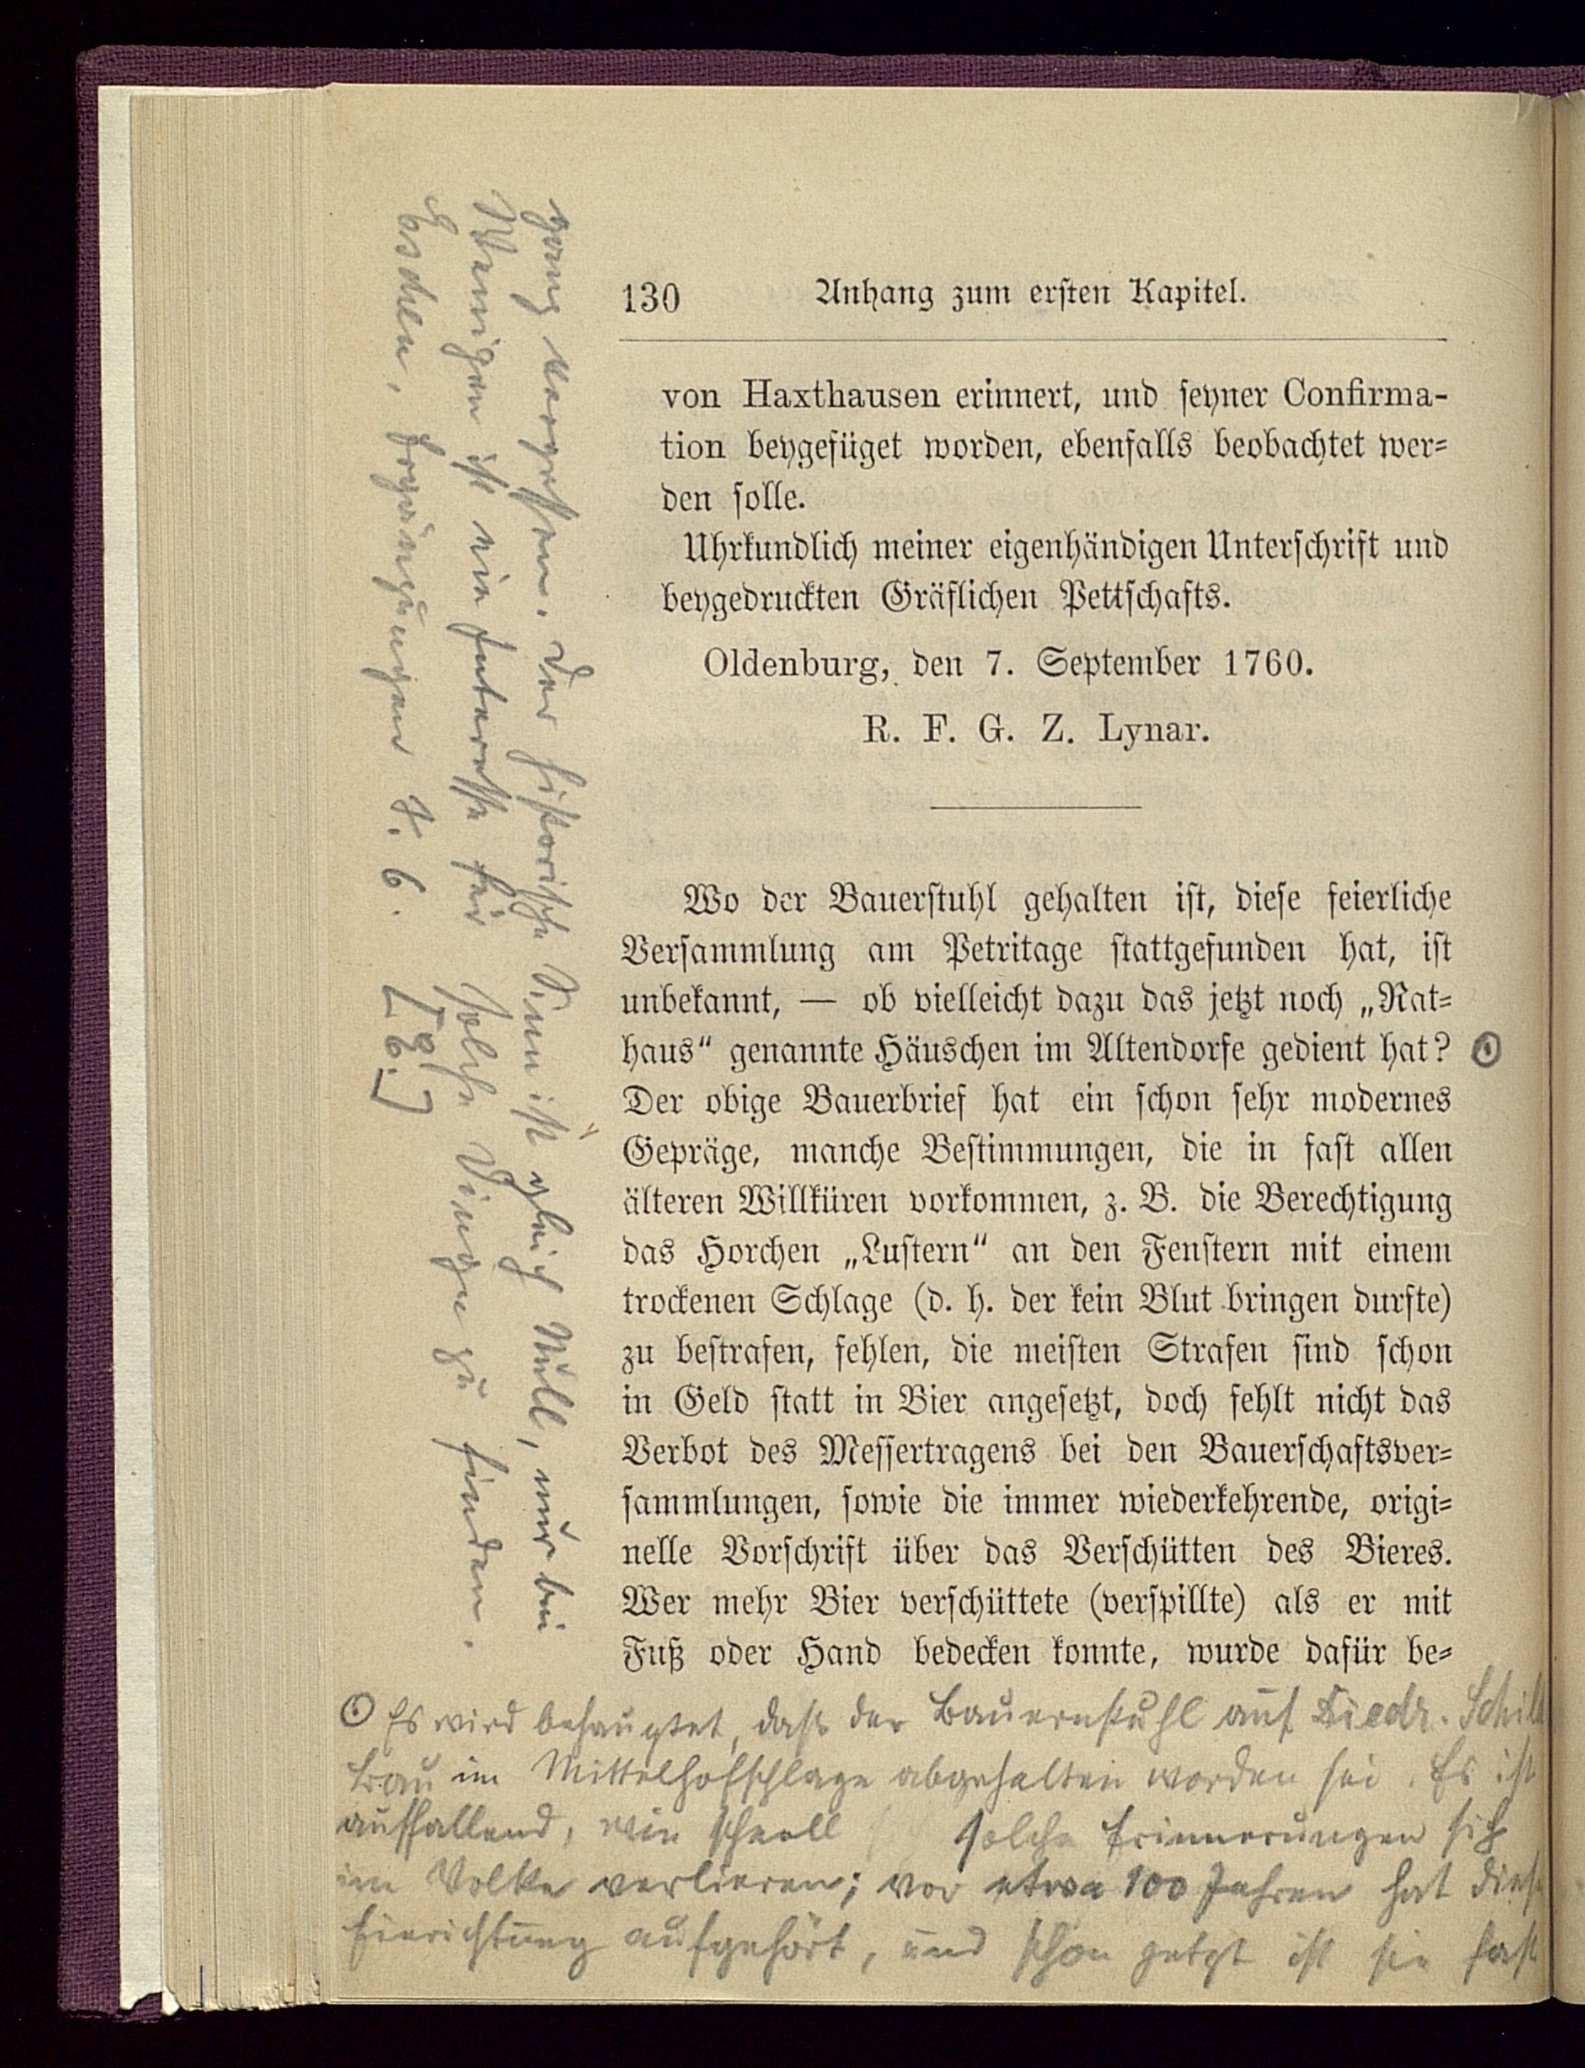 130 Anhang zum ersten Kapitel.
von Haxthausen erinnert, und seyner Confirma-
tion beygefüget worden, ebenfalls beobachtet wer-
den solle.
Uhrkundlich meiner eigenhändigen Unterschrift und
beygedruckten Gräflichen Pettschafts.
Oldenburg, den 7. September 1760.
R. F. G. Z. Lynar.
Wo der Bauerstuhl gehalten ist, diese feierliche
Versammlung am Petritage stattgefunden hat, ist
unbekannt, — ob vielleicht dazu das jetzt noch „Rat-
haus“ genannte Häuschen im Altendorfe gedient hat?
Der obige Bauerbrief hat ein schon sehr modernes
Gepräge, manche Bestimmungen, die in fast allen
älteren Willküren vorkommen, z. B. die Berechtigung
das Horchen „Lustern“ an den Fenstern mit einem
trockenen Schlage (d. h. der kein Blut bringen durfte)
zu bestrafen, fehlen, die meisten Strafen sind schon
in Geld statt in Bier angesetzt, doch fehlt nicht das
Verbot des Messertragens bei den Bauerschaftsver-
sammlungen, sowie die immer wiederkehrende, origi-
nelle Vorschrift über das Verschütten des Bieres.
Wer mehr Bier verschüttete (verspillte) als er mit
Fuß oder Hand bedecken konnte, wurde dafür be-
Es wird behauptet, daß der Bauernstuhl auf Diedr.
Bau im Mittelhofschlage abgehalten worden sei. Es ist
auffallend, wie schnell solche Erinnerungen sich
im Volke verlieren; vor etwa 100 Jahren hat diese
Einrichtung aufgehört, und schon jetzt ist sie fast
ganz vergessen. Der historische Sinn ist gleich Null, nur bei
Wenigen ist ein Interesse für solche Dinge zu finden.
Eschen, Ergänzungen S. 6. [E.]